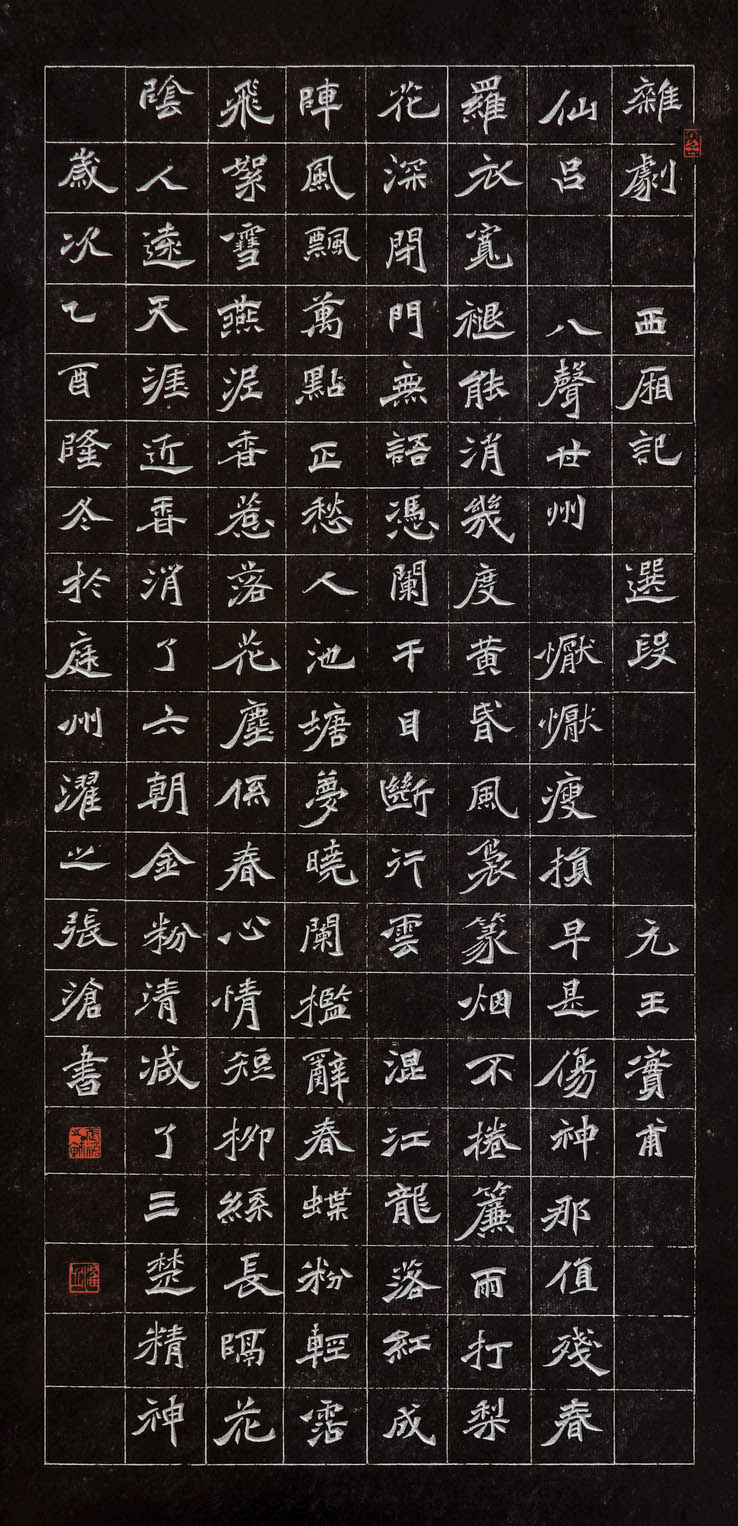 雜劇 西厢記 選段 元王實甫
仙呂 八聲甘州 懨懨瘦損早是傷神那值殘春
羅衣寬褪能消幾度黃昏風裊篆烟不捲簾雨打梨
花深閉門無語憑闌干目斷行雲 混江龍落紅成
陣風飄萬點正愁人池塘夢曉闌檻辭春蝶粉輕霑
飛絮雪燕泥香惹落花塵係春心情短柳絲長隔花
陰人遠天涯近香消了六朝金粉清減了三楚精神
歲次乙酉隆冬於庭州濯之張滄書